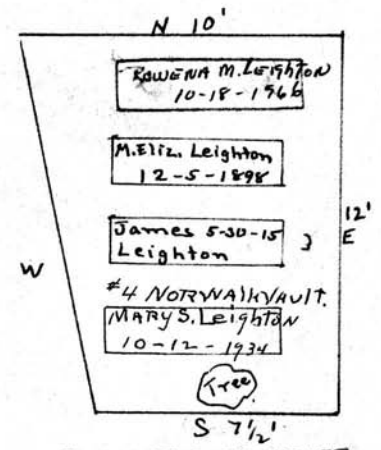 N 10'
ROWENA M. LEIGHTON
10-18-1966
M. Eliz. Leighton
12-5-1898
James 5-30-15
Leighton
12'
E
W
#4 NORWALK VAULT.
MARY S. Leighton
10-12-1934
Tree
S 7 1/2'